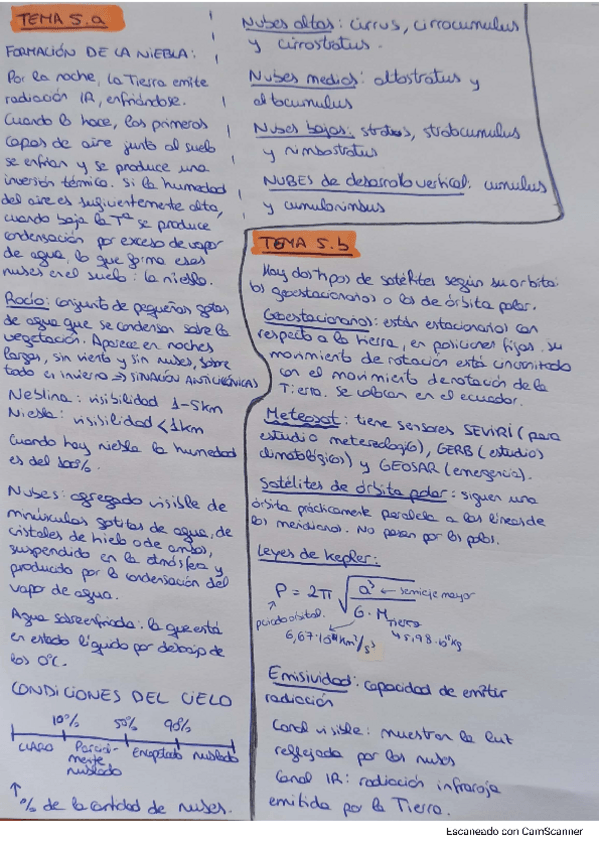 TEMA 5.a
FORMACIÓN DE LA NIEBLA:
Por la noche, la Tierra emite
radiación IR, enfriándose.
Cuando lo hace, las primeras
capas de aire junto al suelo
se enfrían y se produce una
inversión térmica. Si la humedad
del aire es suficientemente alta,
cuando baja la Tª se produce
condensación por exceso de vapor
de agua, lo que forma esas
nubes en el suelo: la niebla.
Rocío: conjunto de pequeñas gotas
de agua que se condensan sobre la
vegetación. Aparece en noches
largas, sin viento y sin nubes, sobre
todo en invierno → SITUACIÓN ANTICICLÓNICAS
Neblina: visibilidad 1-5km
Niebla: visibilidad < 1km
Cuando hay niebla la humedad
es del 100%.
Nubes: agregado visible de
minúsculas gotitas de agua, de
cristales de hielo o de ambos,
suspendido en la atmósfera y
producido por la condensación del
vapor de agua.
Agua sobreenfriada: la que está
en estado líquido por debajo de
los 0ºC.
CONDICIONES DEL CIELO
10% 50% 90%
CLARO Parcial-mente nublado Encapotado nublado
↑
% de la cantidad de nubes.
Nubes altas: cirrus, cirrocumulus
y cirrostratus.
Nubes medias: altostratus y
altocumulus
Nubes bajas: stratus, stratocumulus
y nimbostratus
NUBES de desarrollo vertical: cumulus
y cumulonimbus
TEMA 5.b
Hay dos tipos de satélites según su órbita:
los geoestacionarios o los de órbita polar.
Geoestacionarios: están estacionarios con
respecto a la tierra, en posiciones fijas. Su
movimiento de rotación está sincronizado
con el movimiento de rotación de la
Tierra. Se colocan en el ecuador.
Meteosat: tiene sensores SEVIRI (para
estudio metereológico), GERB (estudios
climatológicos) y GEOSAR (emergencia).
Satélites de órbita polar: siguen una
órbita prácticamente paralela a las líneas de
los meridianos. No pasan por los polos.
Leyes de Kepler:
P = 2π √(a³ / G · M tierra) ← semieje mayor
periodo orbital.
Emisividad: capacidad de emitir
radiación
Canal visible: muestran la luz
reflejada por las nubes
Canal IR: radiación infraroja
emitida por la Tierra.
Escaneado con CamScanner